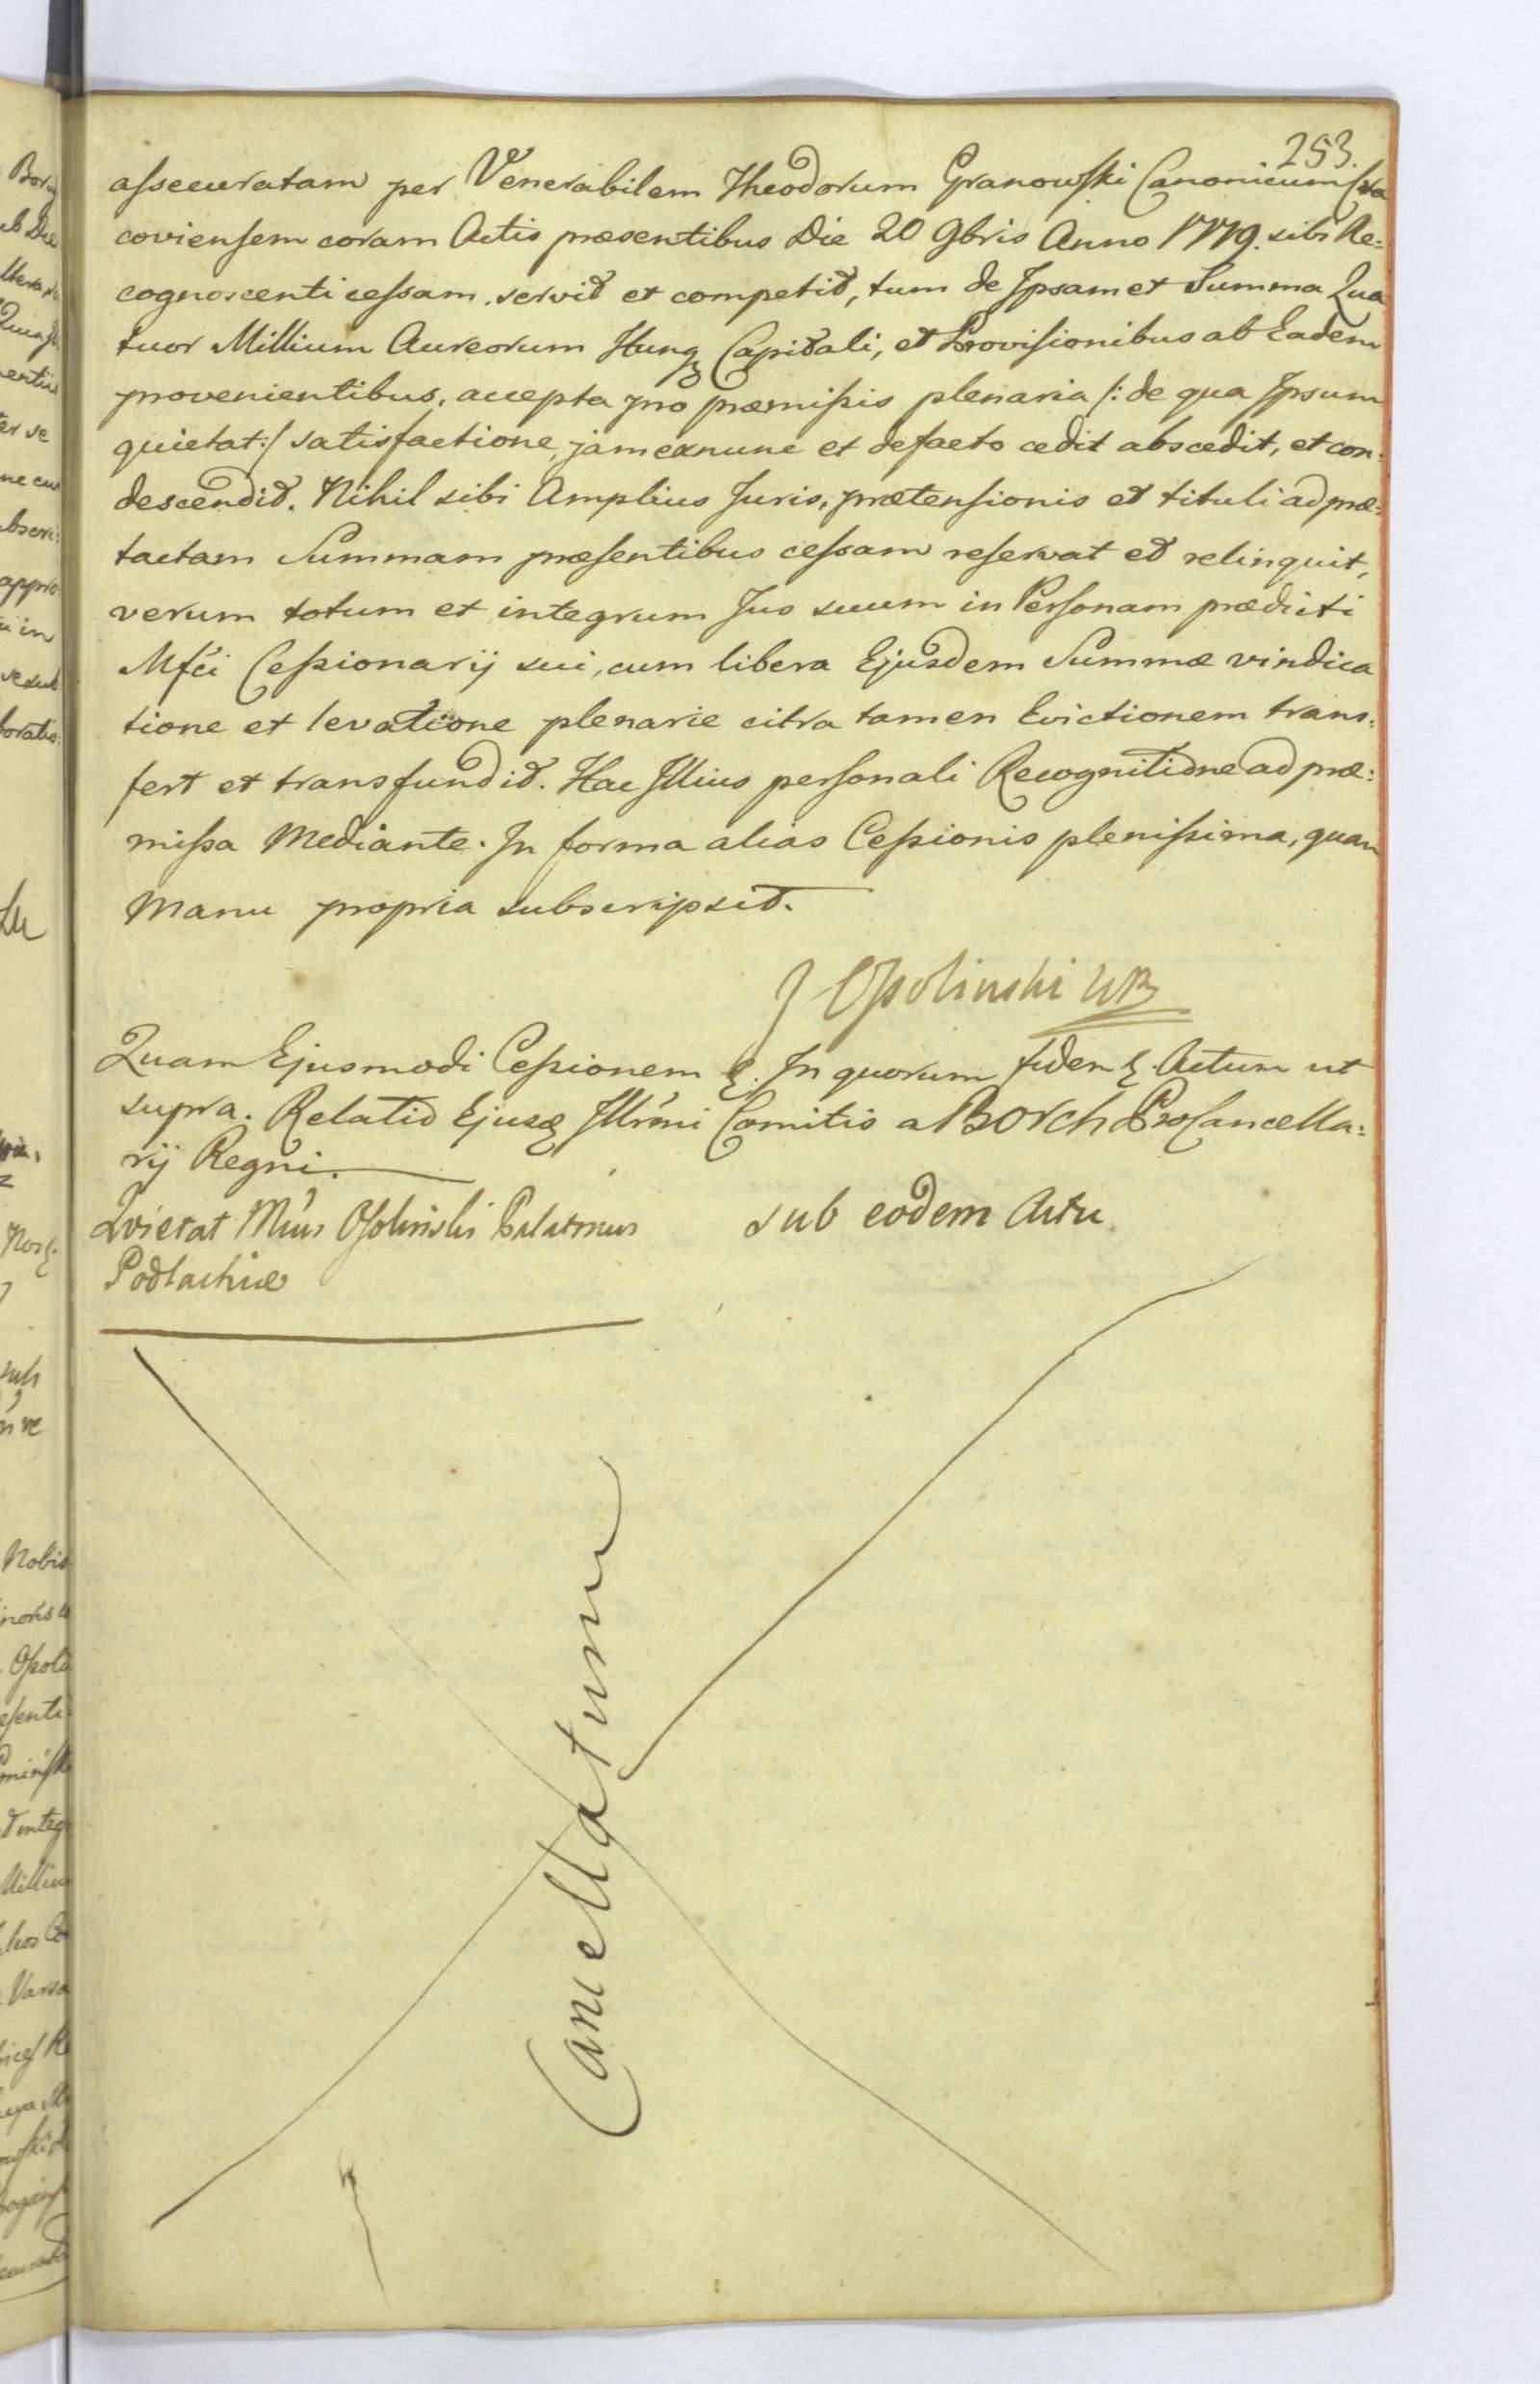 253.
assecuratam per Venerabilem Theodorum Granowski Canonicum Cra
coviensem coram Actis præsentibus Die 20 9bris Anno 1779. sibi Re:
cognoscenti cessam, servit et competit, tum de Ipsamet Summa Qua
tuor Millium Aureorum Hung Capitali, et Provisionibus ab Eadem
provenientibus, accepta pro præmissis plenaria /: de qua Ipsum
quietat :/ satisfactione, jam exnunc et defacto cedit abscedit, et con:
descendit. Nihil sibi Amplius Juris, prætensionis et tituli ad præ:
tactam Summam præsentibus cessam reservat et relinquit,
verum totum et integrum Jus suum in Personam prædicti
Mfci Cessionarij sui, cum libera Ejusdem Summæ vindica
tione et levatione plenarie citra tamen Evictionem trans:
fert et transfundit. Hac Illius personali Recognitione ad præ:
missa Mediante. In forma alias Cessionis plenissima, quam
Manu propria subscripsit.
J Ossolinski WP
Quam Ejusmodi Cessionem &. In quorum fidem &. Actum ut
supra. Relatio Ejusd Illrmi Comitis a Borch ProCancella:
rij Regni.
Qvietat Mcus Ossolinski Palatinus sub eodem Actu
Podlachiæ
Cancellatum